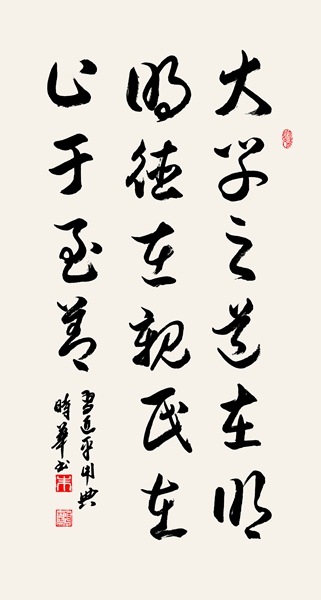 大学之道在明
明德在親民在
止于至善
習近平用典
時華书